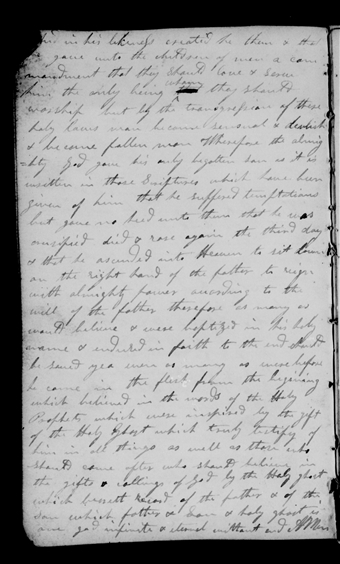 in his likeness created he them & He
gave unto the children of men a com
mandment that they should love & serve
him the only being whom they should
worship but by the transgression of these
holy laws man became sensual & devlish
& became fallen man Therefore the almig
-hty God gave his only begotten son as it is
written in those Scriptures which have been
given of him that he suffered temptations
but gave no heed unto them that he was
crusified died & rose again the third day
& that he ascended into Heaven to sit down
on the right hand of the father to reign
with almighty power according to the
will of the father therefore as many as
would believe & were baptized in his holy
name & endured in faith to the end should
be saved yea even as many as were before
he came in the flesh from the beginning
which believed in the words of the Holy
Prophets which were inspired by the gift
of the Holy Ghost which truly testify of
him in all things as well as those who
should come after who should believe in
the gifts & callings of God by the Holy ghost
which beareth record of the father & of the
son which father & Son & holy ghost is
one god infinite & eternal without end Amen